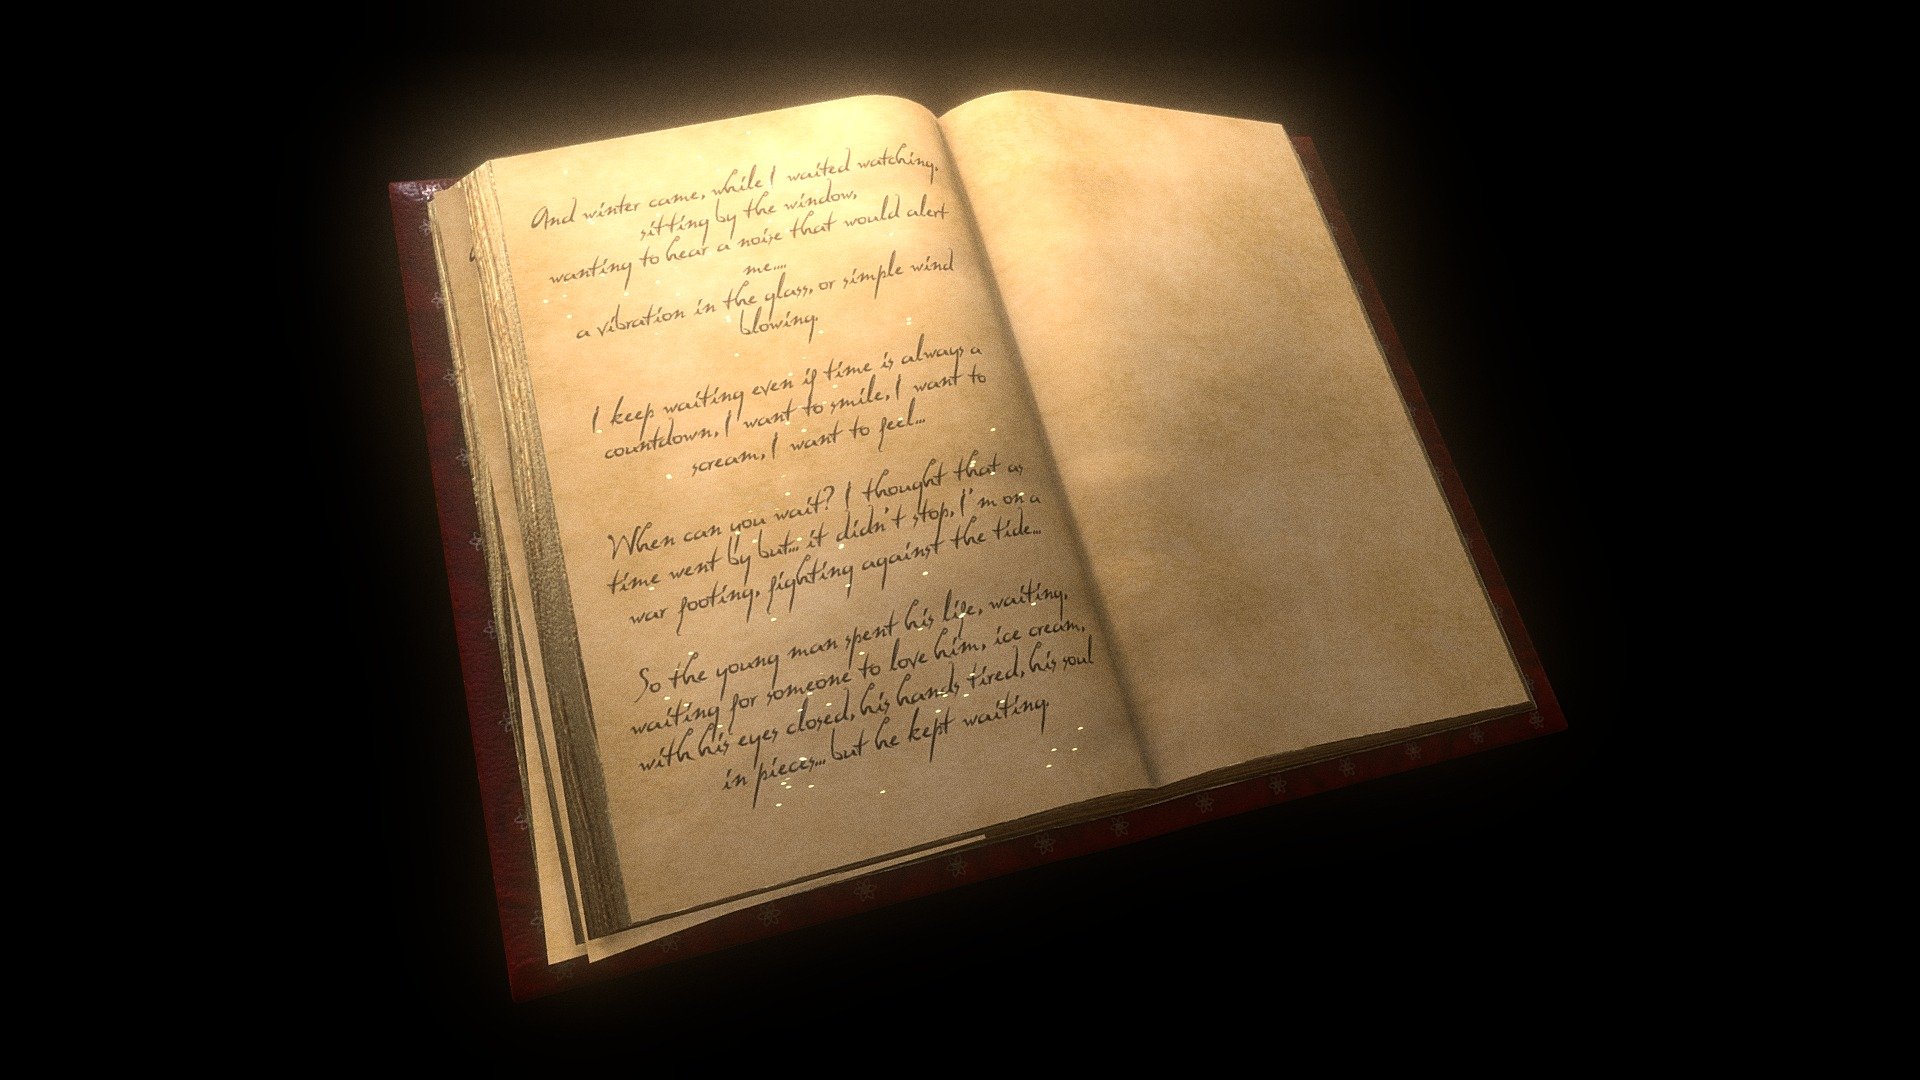 And winter came, while I waited watching,
sitting by the window,
wanting to hear a noise that would alert
me....
a vibration in the glass, or simple wind
blowing.
I keep waiting even if time is always a
countdown, I want to smile, I want to
scream, I want to feel...
When can you wait? I thought that as
time went by but... it didn't stop, I'm on a
war footing, fighting against the tide...
So the young man spent his life, waiting,
waiting for someone to love him, ice cream,
with his eyes closed, his hands tired, his soul
in pieces... but he kept waiting.